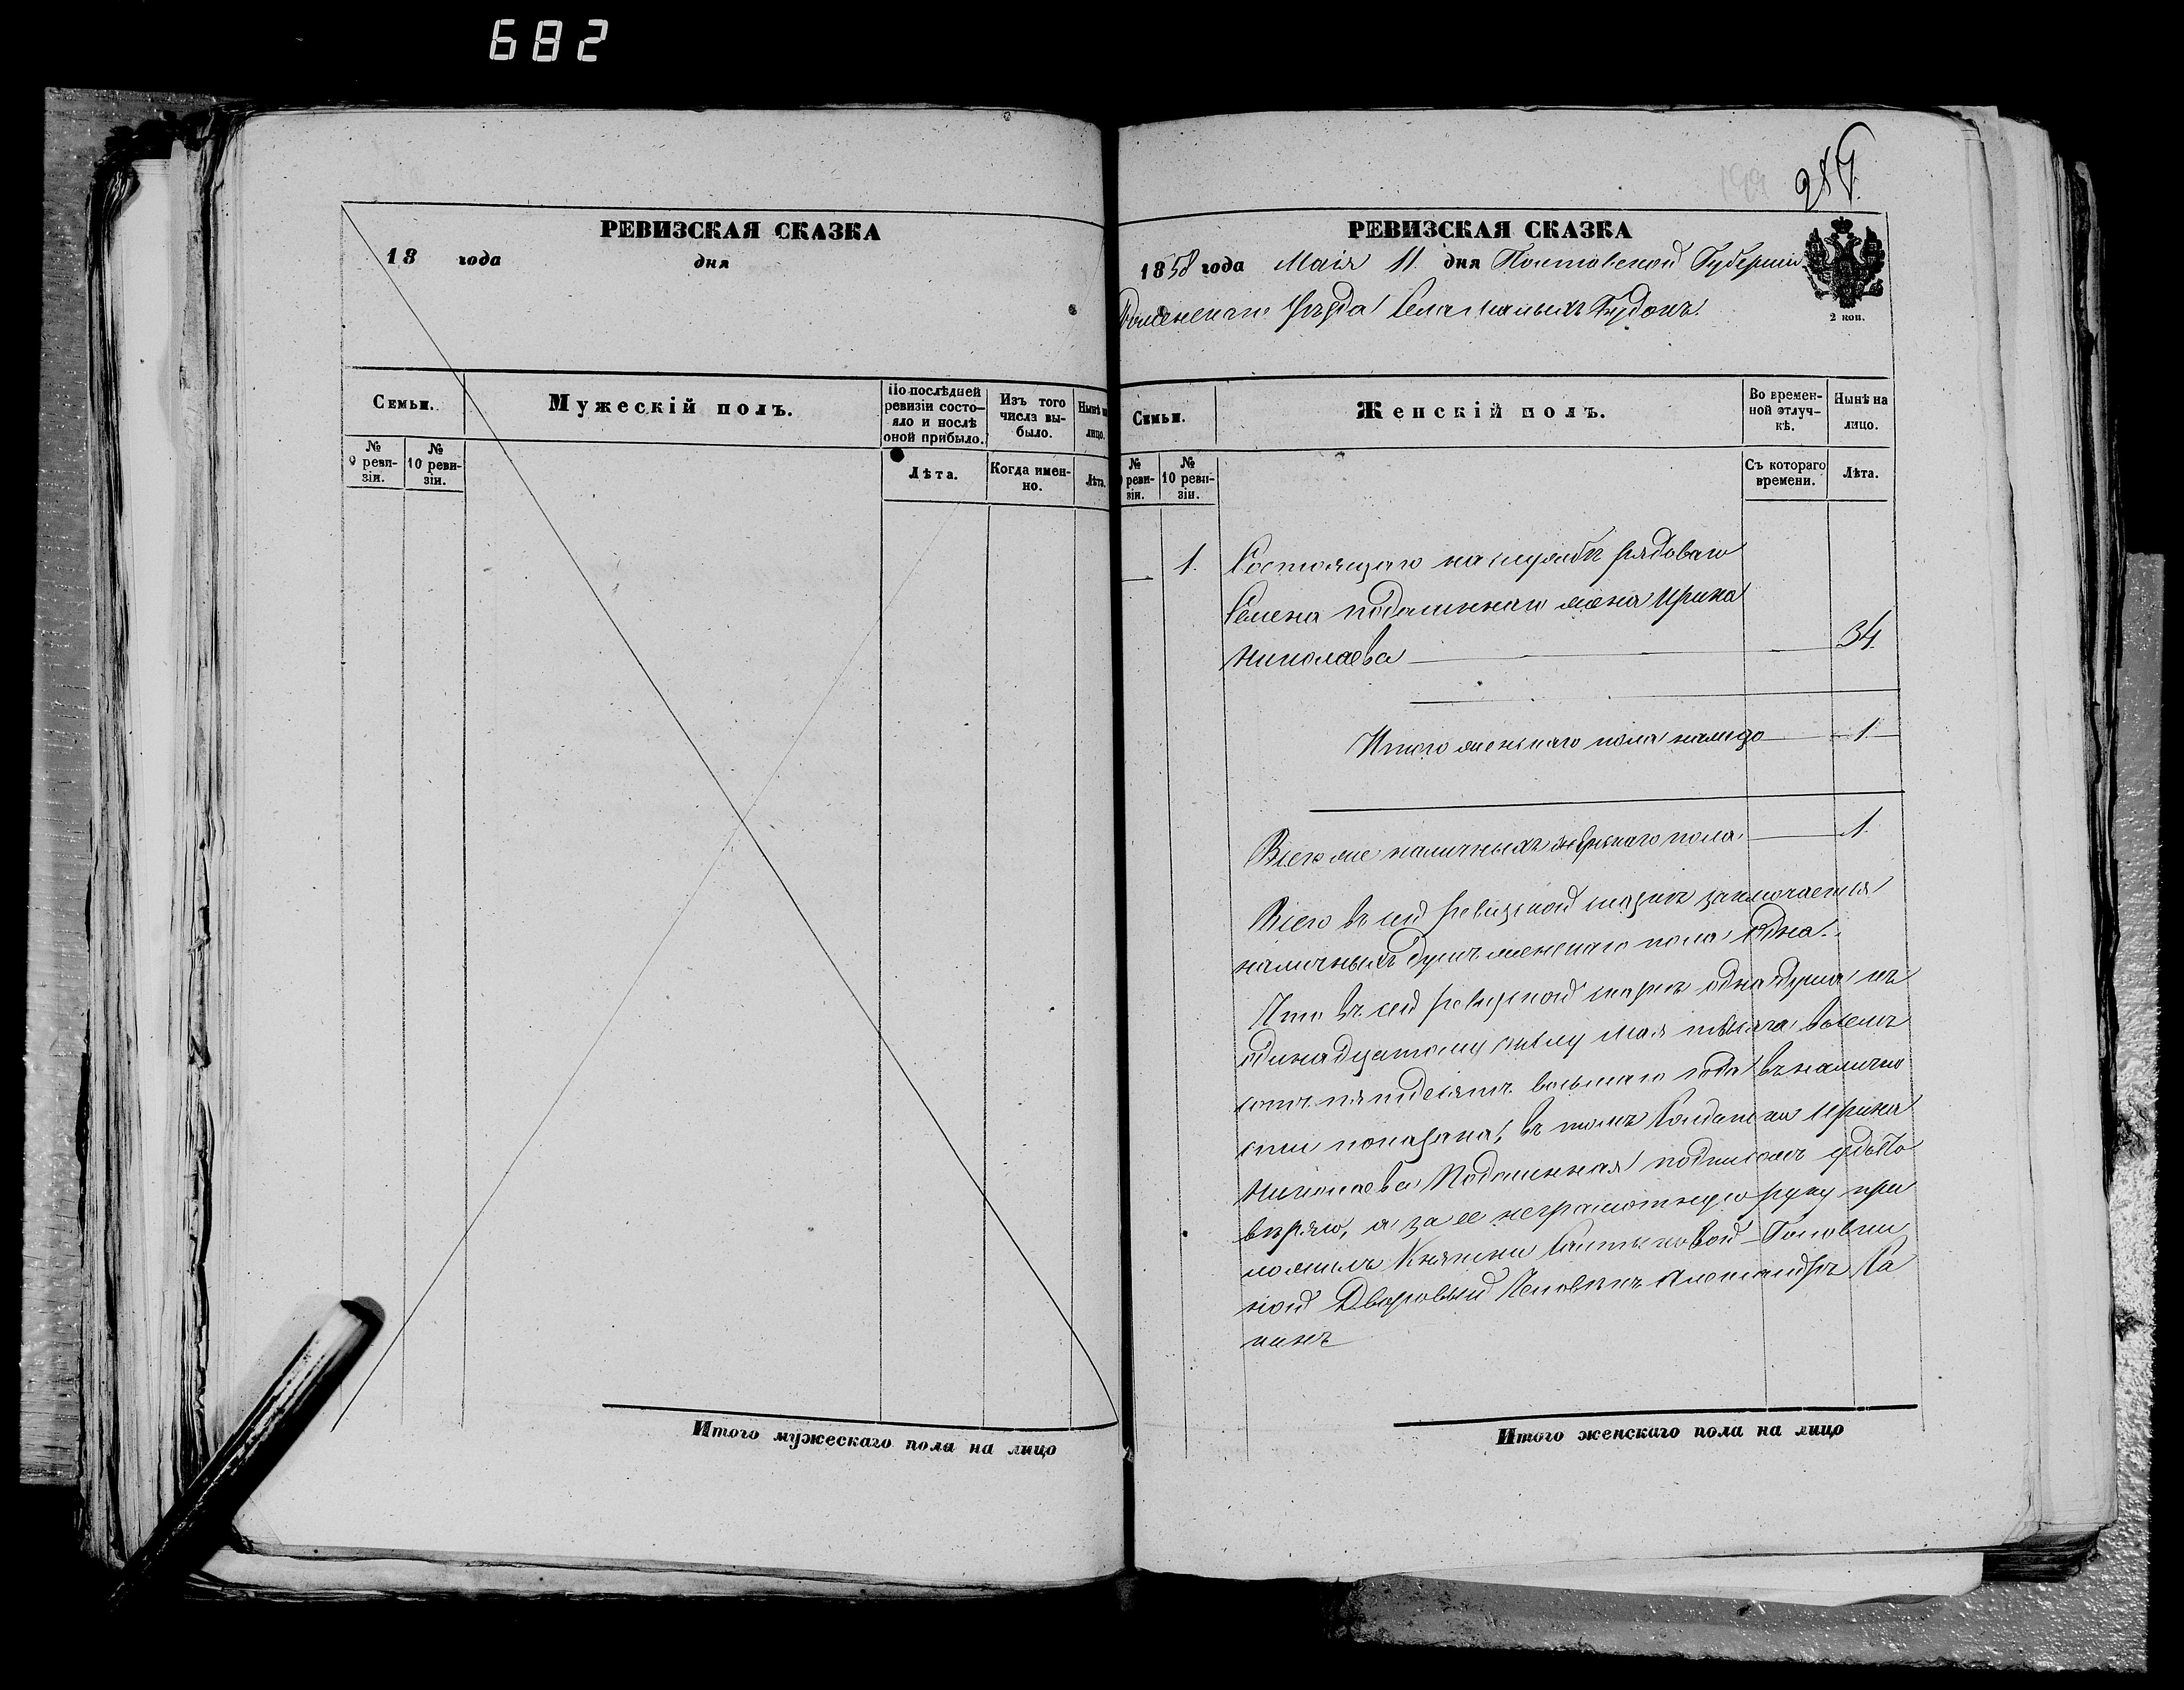 682
РЕВИЗСКАЯ СКАЗКА
18 года дня
Семьи.
Мужескій полъ.
По послѣдней ревизіи состояло и послѣ оной прибыло.
Изъ того числа выбыло.
Нынѣ на лицо.
№ 9 ревизіи.
№ 10 ревизіи.
Лѣта.
Когда именно.
Лѣта.
Итого мужескаго пола на лицо
289.
РЕВИЗСКАЯ СКАЗКА
1858 года Маія 11. дня Полтавской Губерніи
Роменскаго Уѣзда Села Малыхъ Будокъ.
2 коп.
Семьи.
Женскій полъ.
Во временной отлучкѣ.
Нынѣ на лицо.
№ ревизіи.
№ 10 ревизіи.
Съ котораго времени.
Лѣта.
1. Состоящаго на службѣ рядоваго
Семена жена Ирина
Николаева 34.
Итого женскаго пола налицо 1.
Всего же наличныхъ женскаго пола 1.
Всего въ сей ревизской сказкѣ заключается
наличныхъ душъ женскаго пола одна.
Что въ сей ревизской сказкѣ одна душа къ
одинадцатому числу Мая тысяча восемь
сотъ пятдесятъ восьмаго года въ налично
сти показана, въ томъ Солдатка Ирина
Николаева подписомъ
вѣряю, а за ее неграмотную руку при
ложилъ Княгини Салтыковой-Головки
ной Дворовый Человѣкъ Александръ